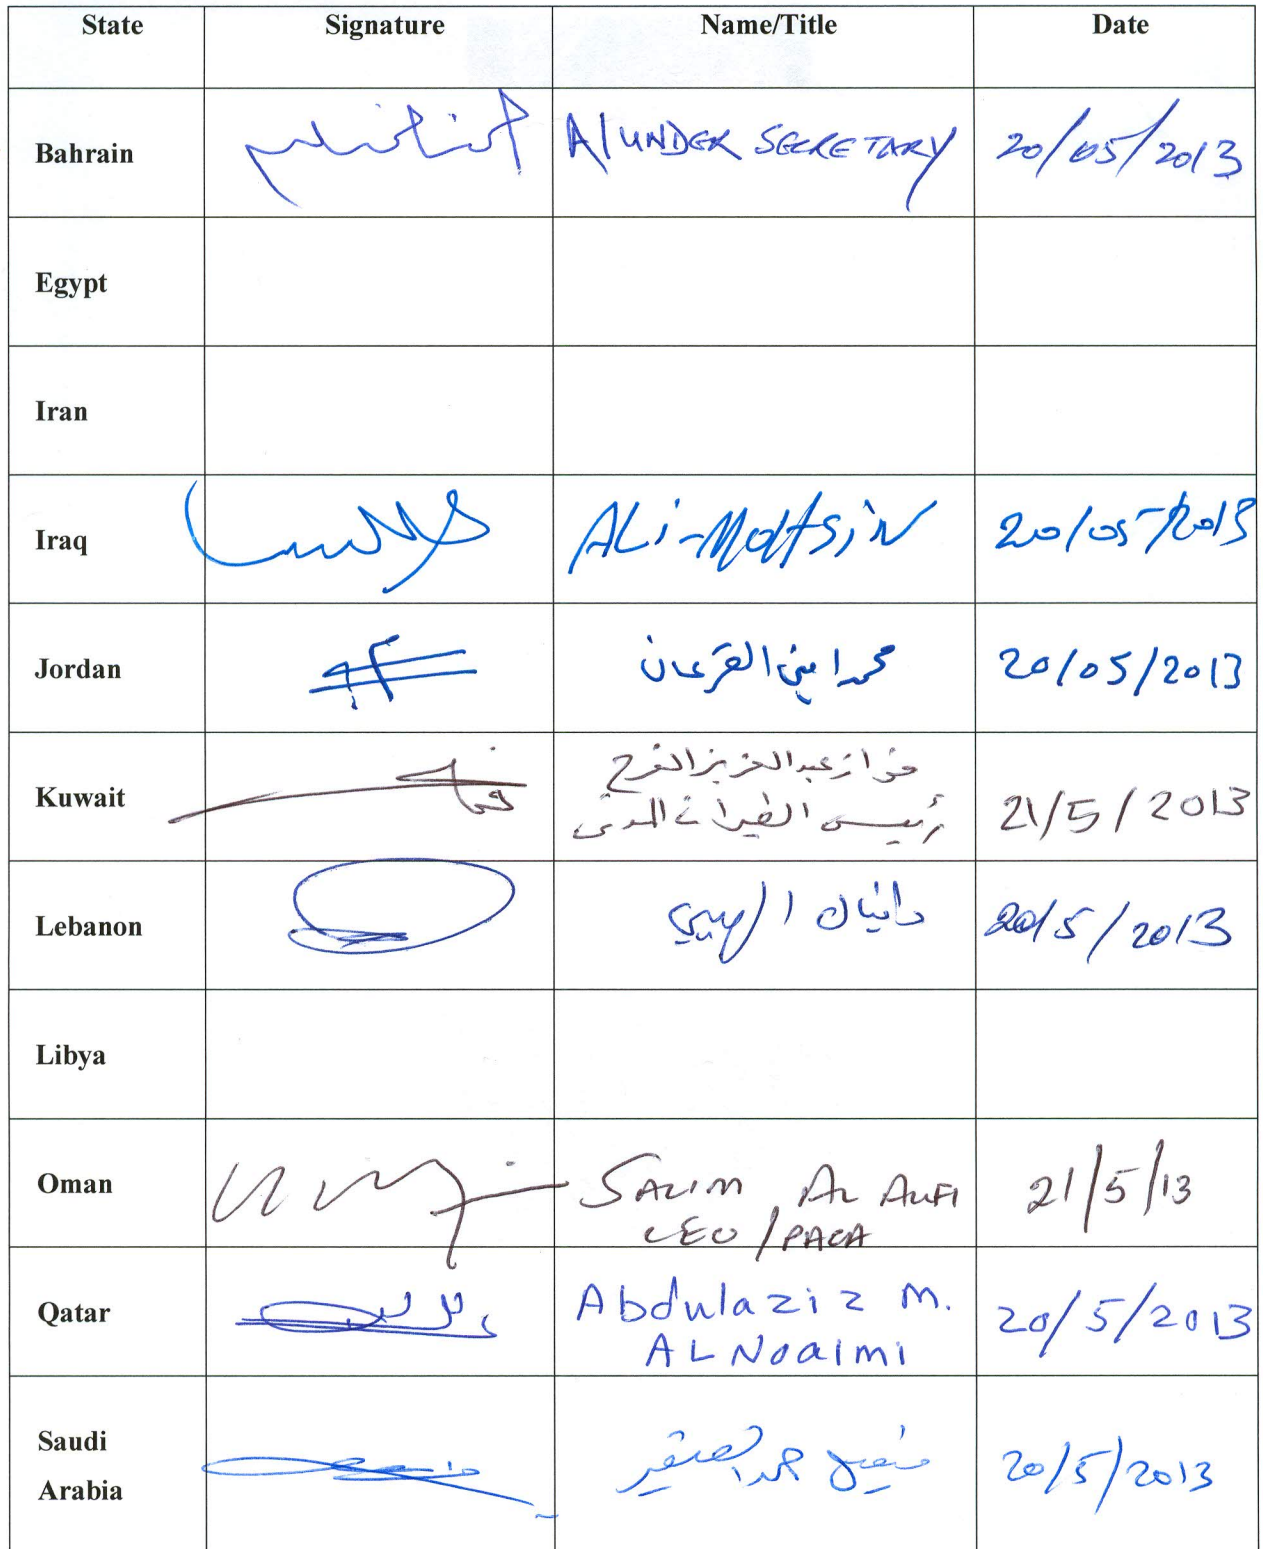 State Signature Name/Title Date
Bahrain A/UNDER SECRETARY 20/05/2013
Egypt
Iran
Iraq ALi-MOHSiN 20/05/2013
Jordan محمد امين القرعان 20/05/2013
Kuwait فواز عبدالعزيز الفرح
رئيس الطيران المدني 21/5/2013
Lebanon دانيال 20/5/2013
Libya
Oman SALIM AL AUFI 21/5/13
CEO/PACA
Qatar Abdulaziz M. 20/5/2013
AL Noaimi
Saudi
Arabia 20/5/2013